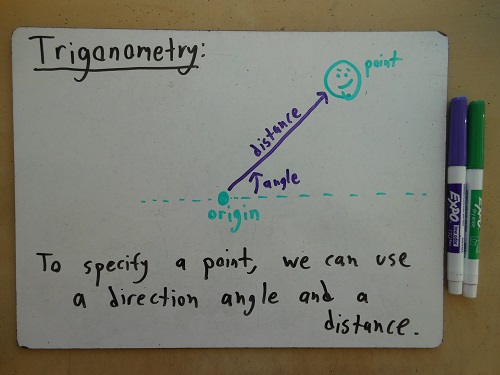 Triganometry:
point
distance
angle
origin
To specify a point, we can use
a direction angle and a
distance.
EXPO